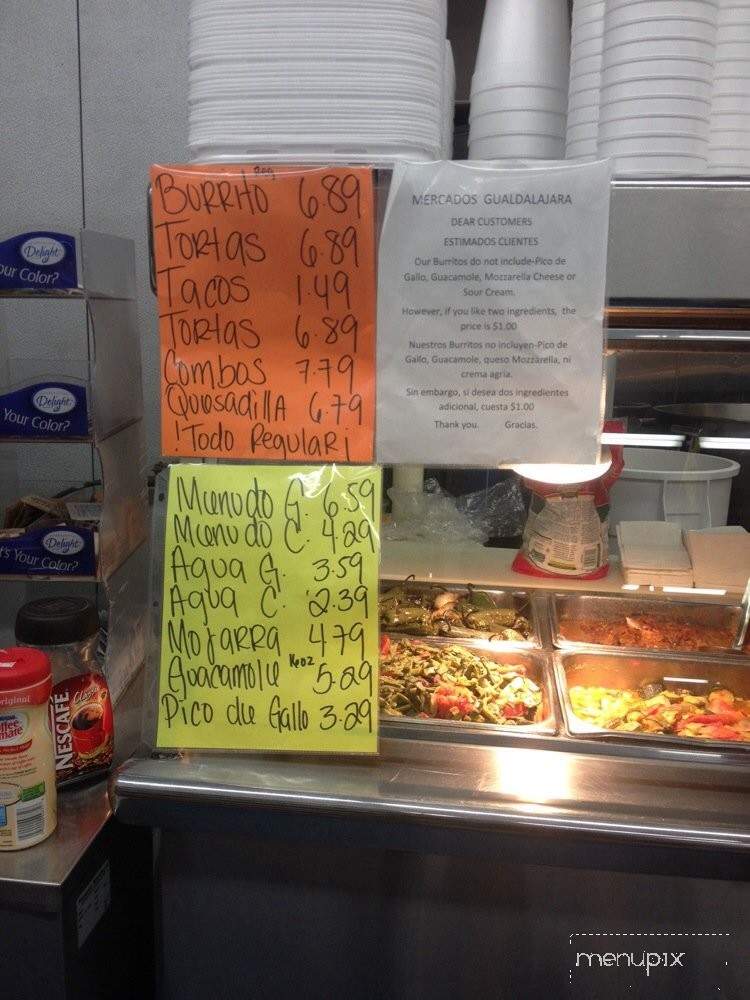 Reg
BURRITO 6.89
TORTAS 6.89
TACOS 1.49
TORTAS 6.89
Combos 7.79
QuesadillA 6.79
!Todo Regular¡
MERCADOS GUALDALAJARA
DEAR CUSTOMERS
ESTIMADOS CLIENTES
Our Burritos do not include-Pico de
Gallo, Guacamole, Mozzarella Cheese or
Sour Cream.
However, if you like two ingredients, the
price is $1.00
Nuestros Burritos no incluyen-Pico de
Gallo, Guacamole, queso Mozzarella, ni
crema agria.
Sin embargo, si desea dos ingredientes
adicional, cuesta $1.00
Thank you. Gracias.
Menudo G. 6.59
Menudo C. 4.29
Agua G. 3.59
Agua C. 2.39
Mojarra 4.79
Guacamole 16oz 5.29
Pico de Gallo 3.29
Delight
our Color?
Delight
Your Color?
Delight
's Your Color?
NESCAFÉ
Clásico
original
Coffee
mate
menupix